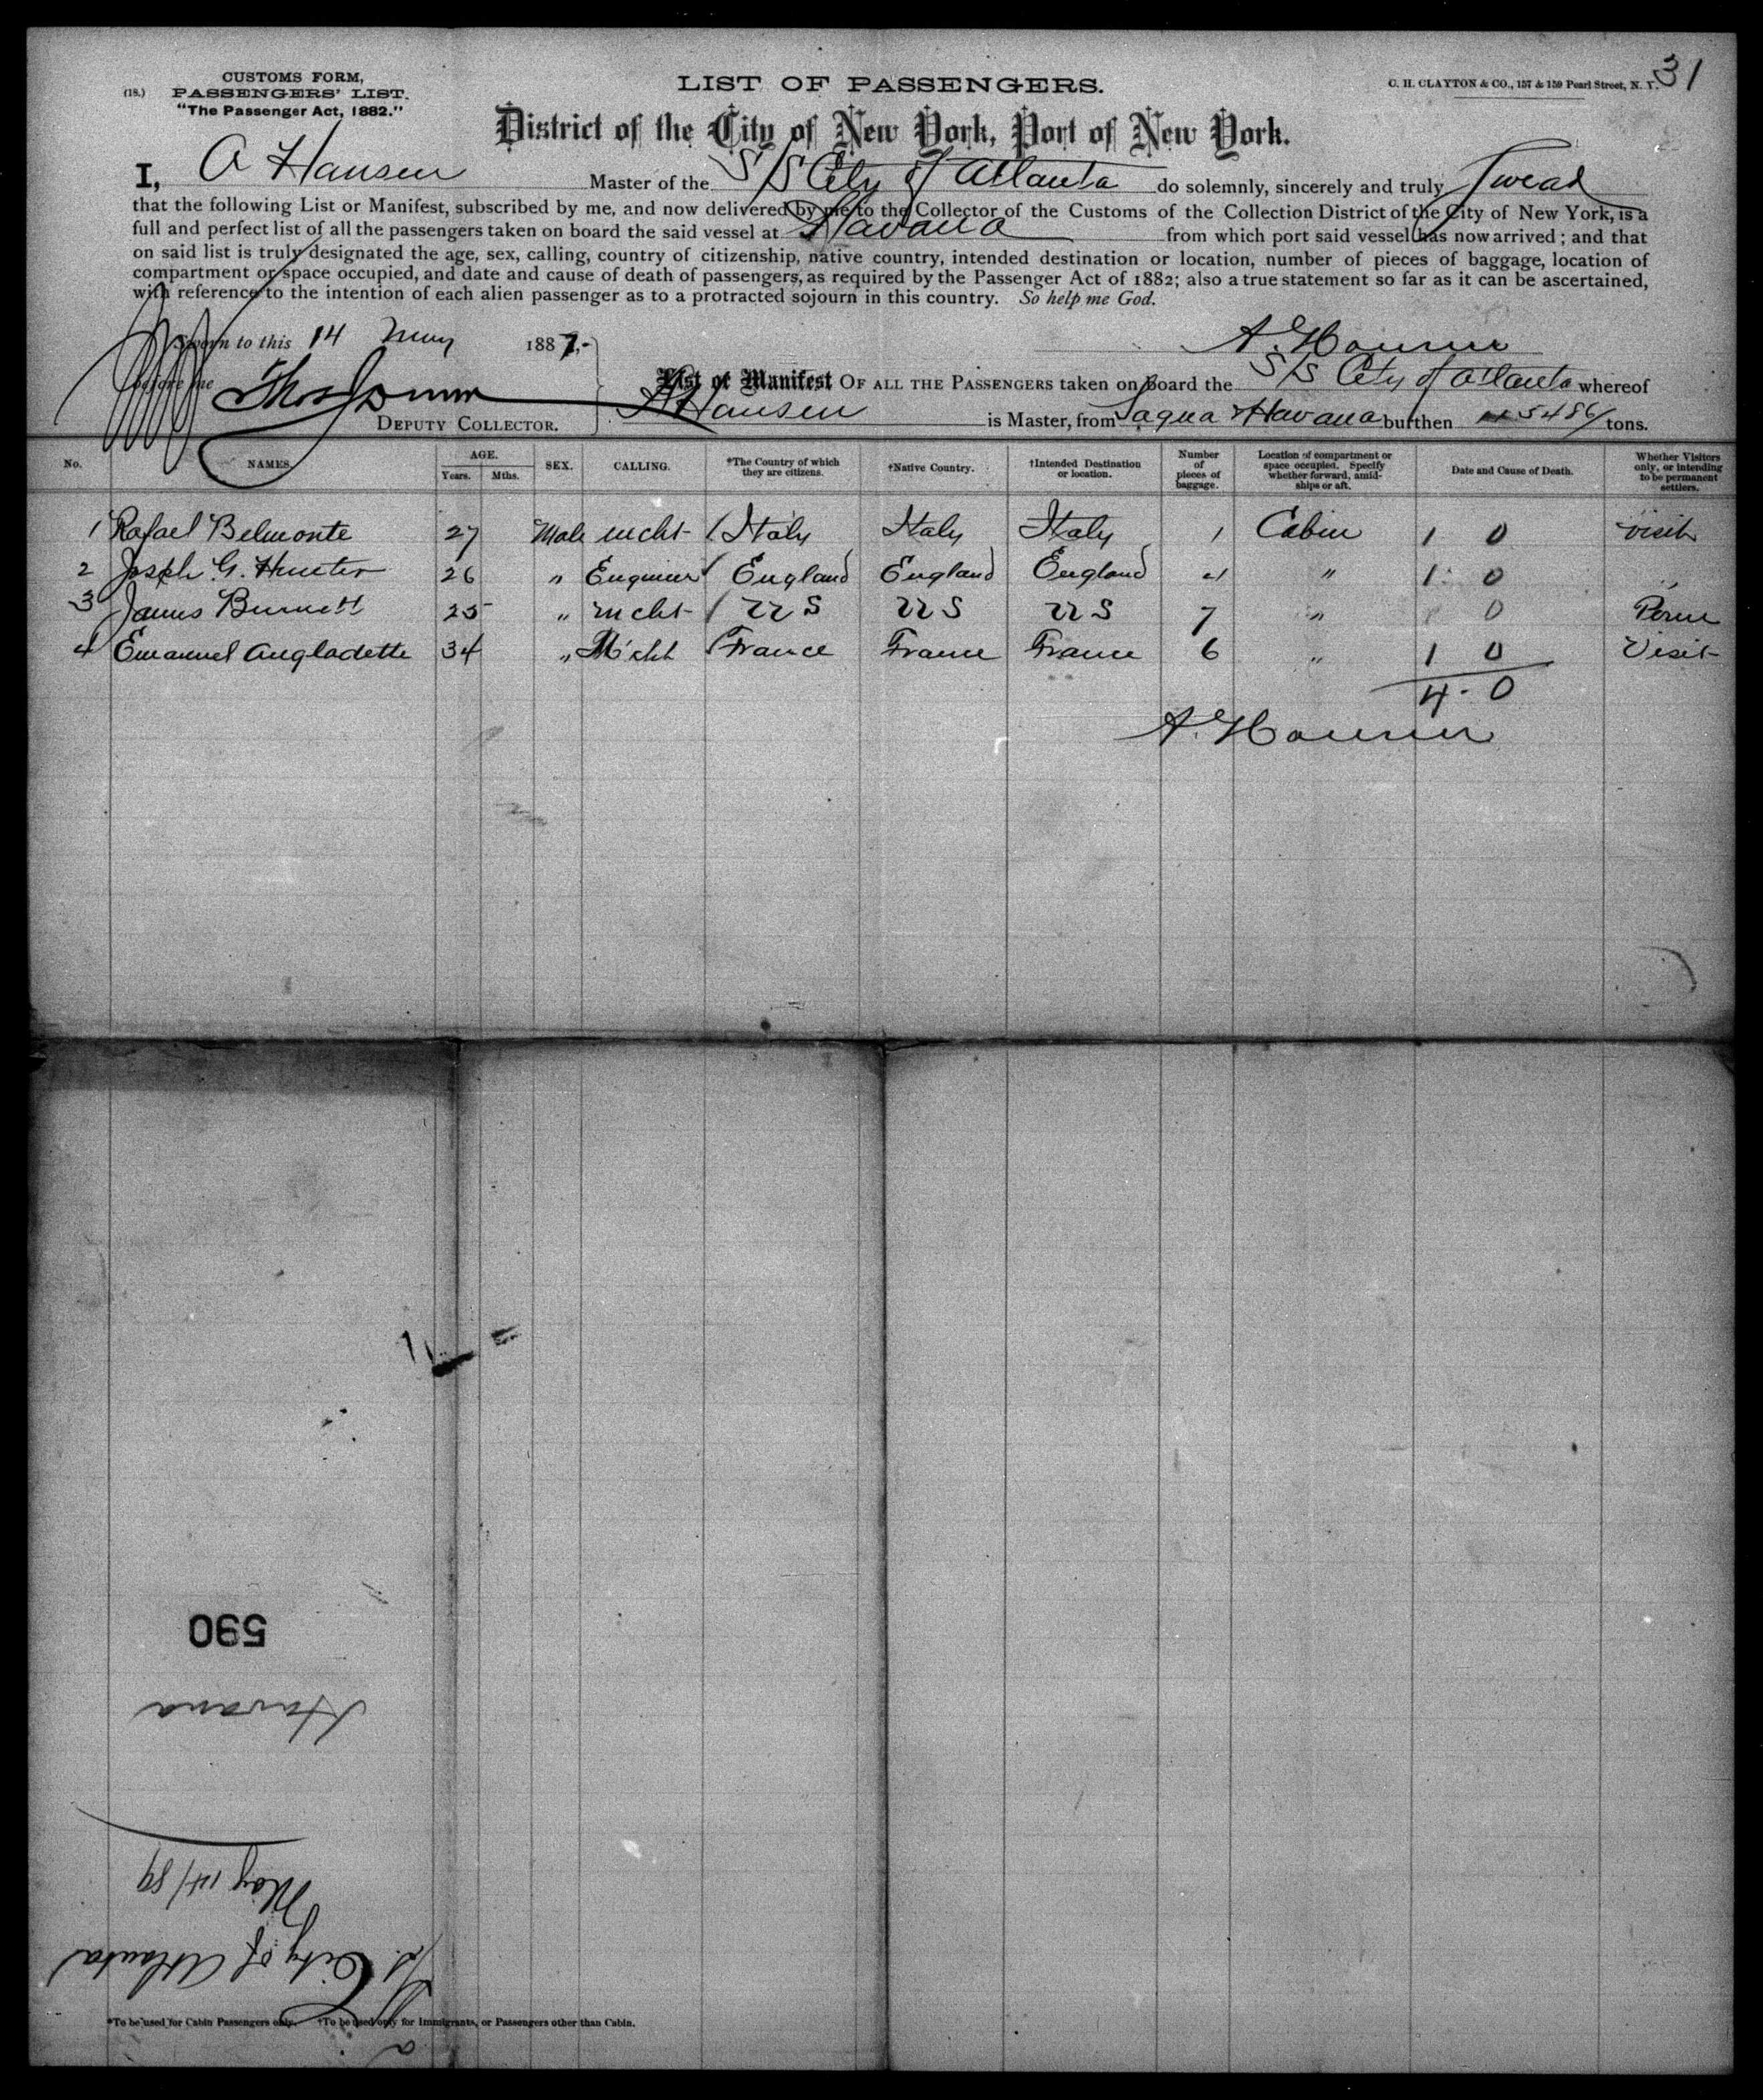 31
(18.)
CUSTOMS FORM,
PASSENGERS' LIST.
"The Passenger Act, 1882."
LIST OF PASSENGERS.
C. H. CLAYTON & CO., 157 & 159 Pearl Street, N. Y.
District of the City of New York, Port of New York.
I, A Hansen Master of the S/S City of Atlanta do solemnly, sincerely and truly Swear
that the following List or Manifest, subscribed by me, and now delivered by me to the Collector of the Customs of the Collection District of the City of New York, is a
full and perfect list of all the passengers taken on board the said vessel at Havana from which port said vessel has now arrived; and that
on said list is truly designated the age, sex, calling, country of citizenship, native country, intended destination or location, number of pieces of baggage, location of
compartment or space occupied, and date and cause of death of passengers, as required by the Passenger Act of 1882; also a true statement so far as it can be ascertained,
with reference to the intention of each alien passenger as to a protracted sojourn in this country. So help me God.
Sworn to this 14 May 188
A. Hansen
before me
DEPUTY COLLECTOR.
List or Manifest OF ALL THE PASSENGERS taken on board the S/S City of Atlanta whereof
A Hansen is Master, from Sagua & Havana burthen tons.
No. NAMES. AGE. Years. Mths. SEX. CALLING. *The Country of which they are citizens. †Native Country. †Intended Destination or location. Number of pieces of baggage. Location of compartment or space occupied. Specify whether forward, amidships or aft. Date and Cause of Death. Whether Visitors only, or intending to be permanent settlers.
1 Rafael Belmonte 27 Male mcht / Italy Italy Italy 1 Cabin 1 0 Visit
2 Joseph G. Hunter 26 " Engineer / England England England 4 " 1 0 "
3 James Burnett 25 " mcht / US US US 7 " 0
4 Emanuel Angladette 34 " Mcht / France France France 6 " 1 0 Visit
4 - 0
A. Hansen
590
Havana
May 14/89
City of Atlanta
*To be used for Cabin Passengers only. †To be used only for Immigrants, or Passengers other than Cabin.